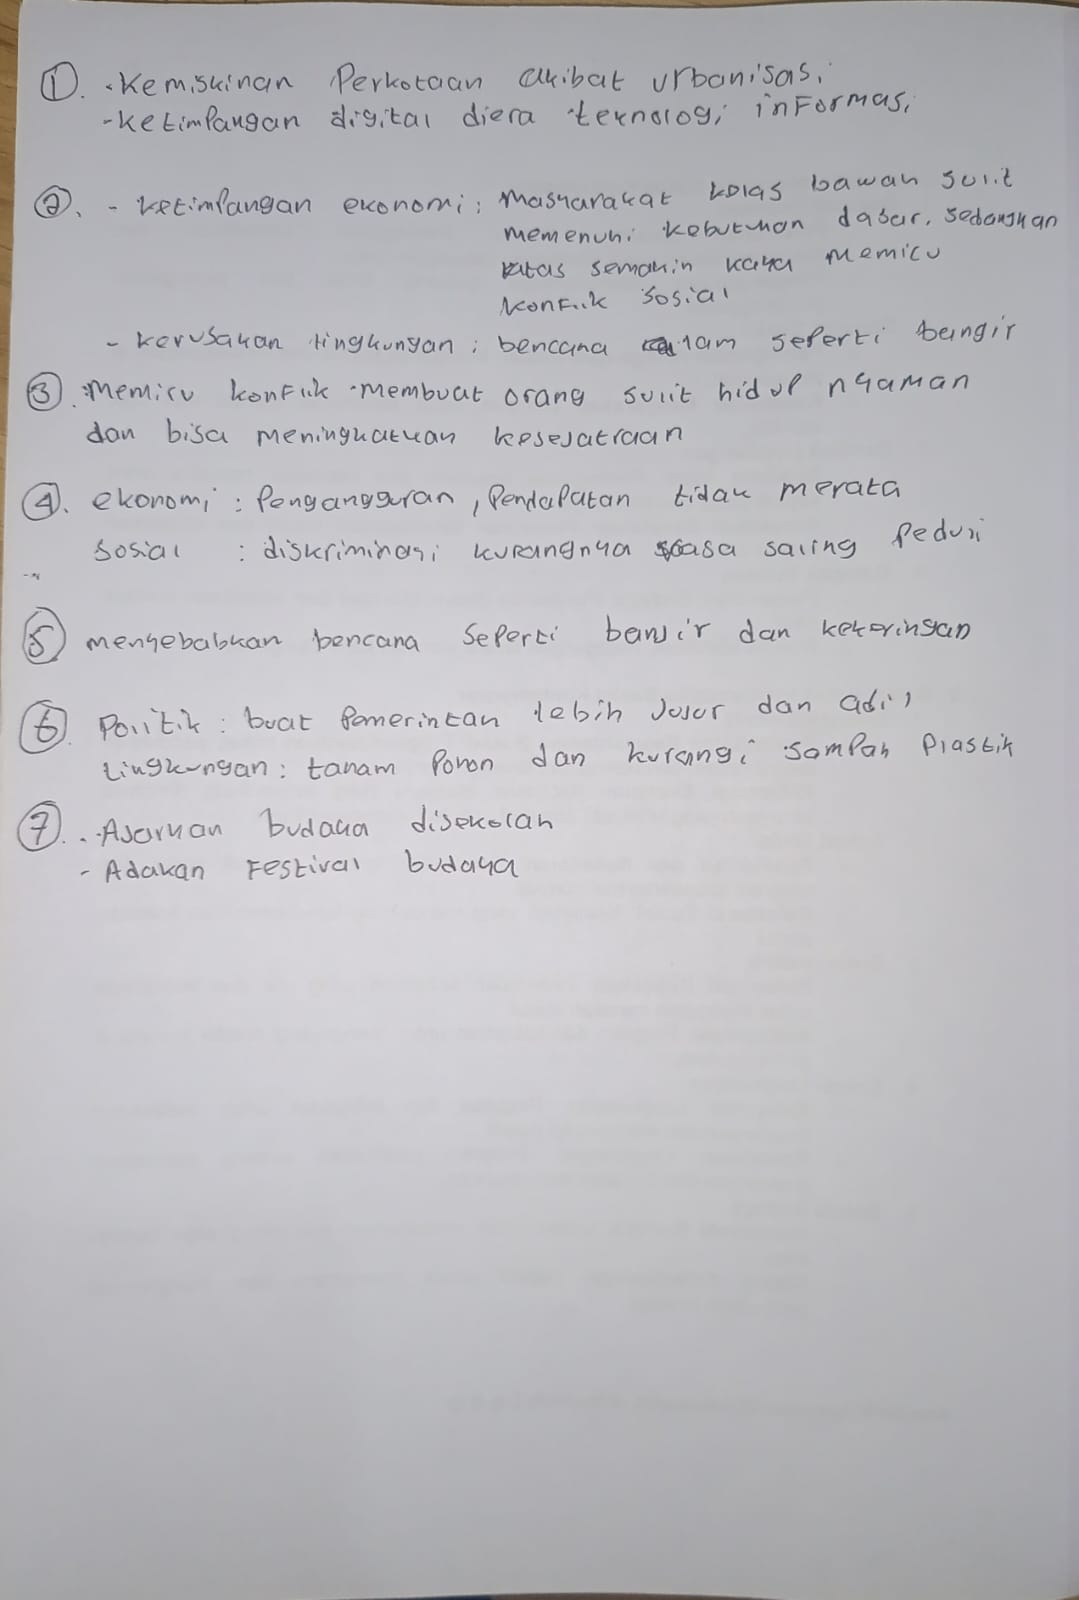 ①. - Kemiskinan Perkotaan akibat urbanisasi
- Ketimpangan digital diera teknologi informasi
②. - ketimpangan ekonomi : Masyarakat kelas bawah sulit
memenuhi kebutuhan dasar, sedangkan
atas semakin kaya memicu
konflik sosial
- kerusakan lingkungan : bencana alam seperti bangir
③. memicu konflik membuat orang sulit hidup nyaman
dan bisa meningkatkan kesejatraan
④. ekonomi : Pengangguran, Pendapatan tidak merata
sosial : diskriminasi kurangnya rasa saling peduli
⑤ menyebabkan bencana seperti banjir dan kekeringan
⑥. Politik : buat Pemerintah lebih jujur dan adil
Lingkungan : tanam Pohon dan kurangi sampah Plastik
⑦. - Ajarkan budaya disekolah
- Adakan Festival budaya